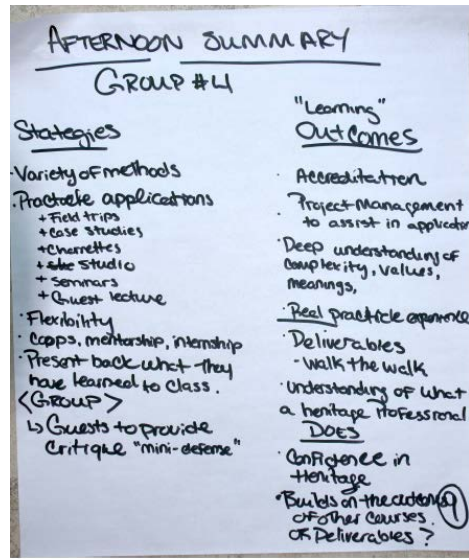 AFTERNOON SUMMARY
GROUP #4
Stategies
· Variety of methods
· Practicle applications
+ Field trips
+ Case studies
+ Charrettes
+ Studio
+ Seminars
+ Guest lecture
· Flexibility
· Coops, mentorship, internship
· Present back what they
have learned to class.
<GROUP>
↳ Guests to provide
critique "mini-defense"
"Learning"
OUTCOMES
· Accreditation
· Project Management
to assist in application
· Deep understanding of
complexity, values,
meanings,
· Real practicle experience
· Deliverables
- walk the walk
· Understanding of what
a heritage Professional
DOES
· Confidence in
Heritage
· Builds on the
of other courses.
or Deliverables ?
9